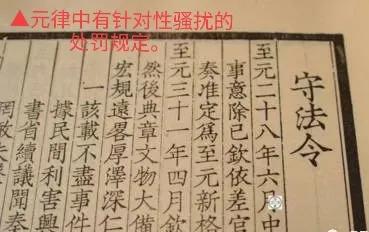 ▲元律中有针对性骚扰的
处罚规定。
守法令
至元二十八年六月中
事意除已欽依差官
奏准定爲至元新格
至元三十一年四月欽
然後典章文物大備
宏規遠畧厚澤深仁
一該載不盡事件
據民間利害興
書省續議聞奏